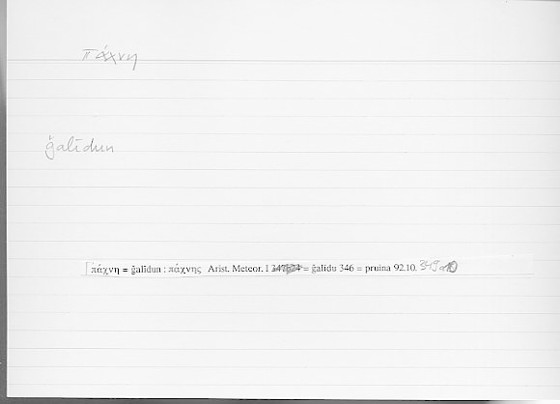 πάχνη
ǧalīdun
πάχνη = ǧalīdun : πάχνης Arist. Meteor. I = ǧalīdu 346 = pruina 92.10.